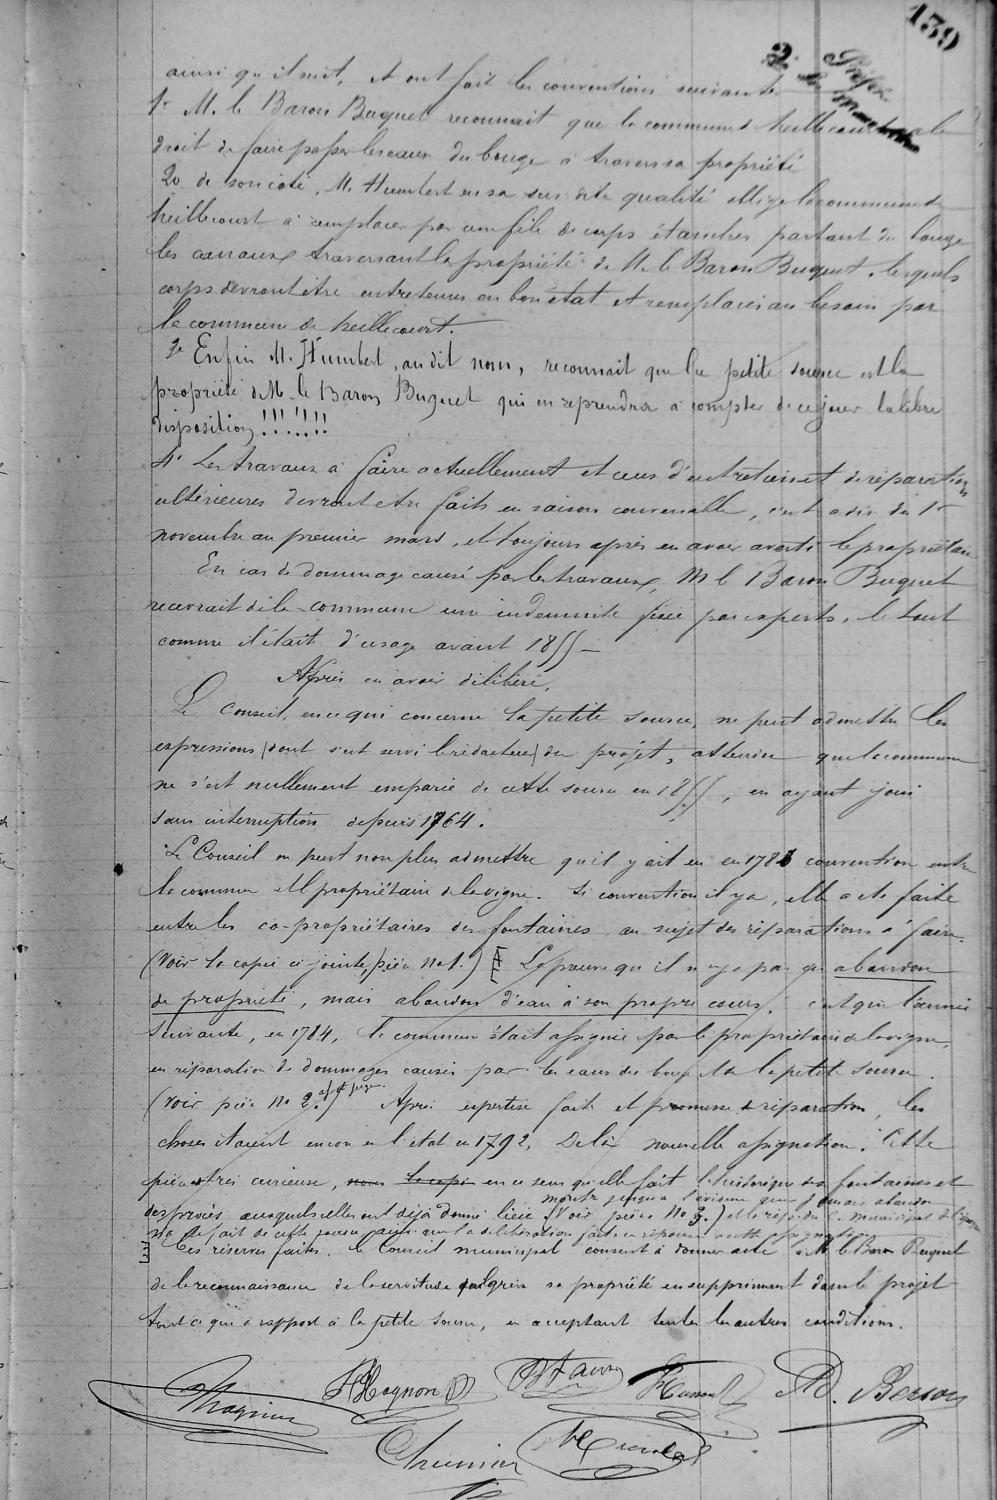 139
2 Préfec.
ainsi qu'il suit, et ont fait les conventions suivantes
1° M. le Baron Buquet reconnait que la commune d'heillecourt a le
droit de faire passer les eaux du bouge à travers sa propriété
2o de son coté, M. Humbert en sa sus dite qualité oblige la commune de
heillecourt à remplacer par une file de corps étanches partant du bouge
les canaux traversant la propriété de M. le Baron Buquet, lesquels
corps devront être entretenus en bon état et remplacés au besoin par
la commune de heillecourt.
3e Enfin M. Humbert, au dit nom, reconnait que la petite source est la
propriété de M. le Baron Buquet qui en reprendra à compter de ce jour la libre
disposition !!!!!!!
4° Les travaux à faire actuellement et ceux d'entretien et de réparations
ultérieures devront être faits en saison convenable, c'est à dire du 1er
novembre au premier mars, et toujours après en avoir averti le propriétaire
En cas de dommage causé par les travaux, M le Baron Buquet
recevrait de la commune une indemnité fixée par experts, le tout
comme il était d'usage avant 1855 —
Après en avoir délibéré,
Le Conseil, en ce qui concerne la petite source, ne peut admettre les
expressions (dont s'est servi le rédacteur) du projet, attendu que la commune
ne s'est nullement emparée de cette source en 1855, en ayant joui
sans interruption depuis 1764.
Le Conseil ne peut non plus admettre qu'il y ait eu en 1783 convention entre
la commune et le propriétaire de la vigne. Si convention il y a, elle a été faite
entre les co-propriétaires des fontaines au sujet des réparations à faire.
(Voir la copie ci jointe, pièce No 1.) La preuve qu'il n'y a pas eu abandon
de propriété, mais abandon d'eau à son propre cours, c'est que l'année
suivante, en 1784, la commune était assignée par le propriétaire de la vigne,
en réparation de dommages causés par les eaux du bouge et de la petite source.
(Voir pièce No 2.) Après expertise faite et promesse de réparation, les
choses étaient encore en l'état en 1792. De là nouvelle assignation. Cette
pièce est très curieuse, en ce sens qu'elle fait l'historique des fontaines et
des procès auxquels elles ont déjà donné lieu (Voir pièce No 3.)
Ces réserves faites, le Conseil municipal consent à donner acte à M. le Baron Buquet
de la reconnaissance de la servitude qui grève sa propriété en supprimant dans le projet
tout ce qui a rapport à la petite source, en acceptant toutes les autres conditions.
Magnien HHognon Humbert D. Berson
Chrumier